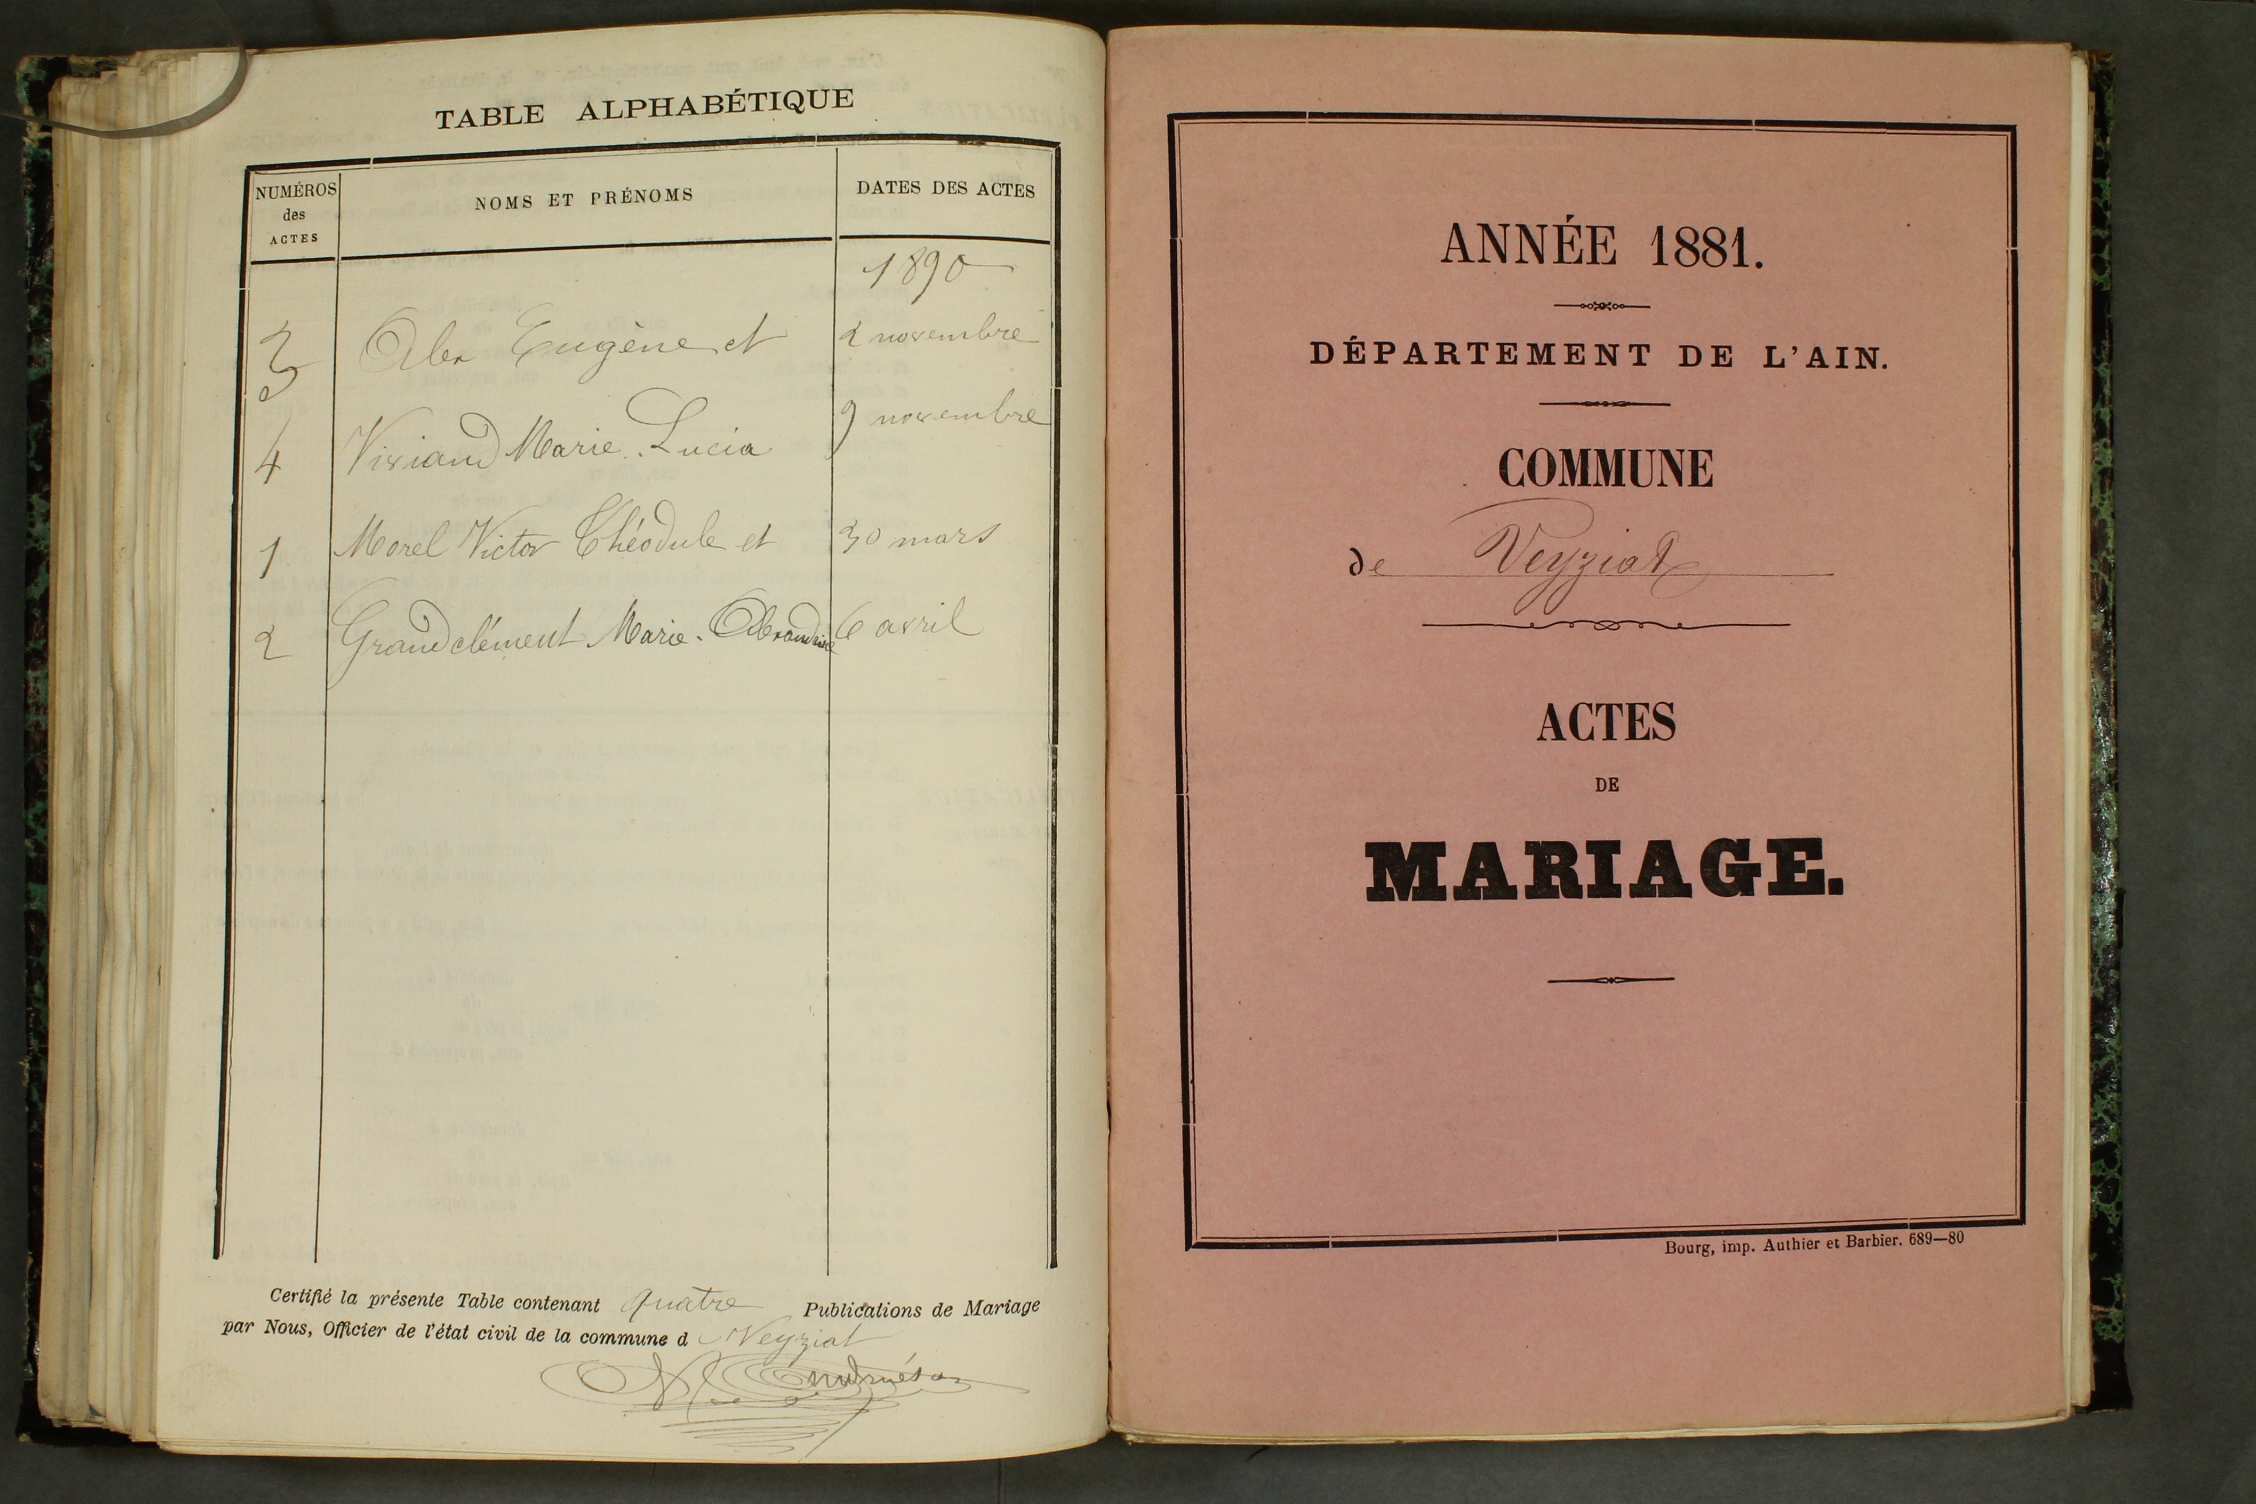 TABLE ALPHABÉTIQUE
NUMÉROS des ACTES
NOMS ET PRÉNOMS
DATES DES ACTES
1890
3 Alex Eugène et 2 novembre
4 Viviand Marie Lucia 9 novembre
1 Morel Victor Théodule et 30 mars
2 Grandclément Marie-Alexandrine 6 avril
Certifié la présente Table contenant quatre Publications de Mariage
par Nous, Officier de l'état civil de la commune d Veyziat
ANNÉE 1881.
DÉPARTEMENT DE L'AIN.
COMMUNE
de Veyziat
ACTES
DE
MARIAGE.
Bourg, imp. Authier et Barbier. 689—80